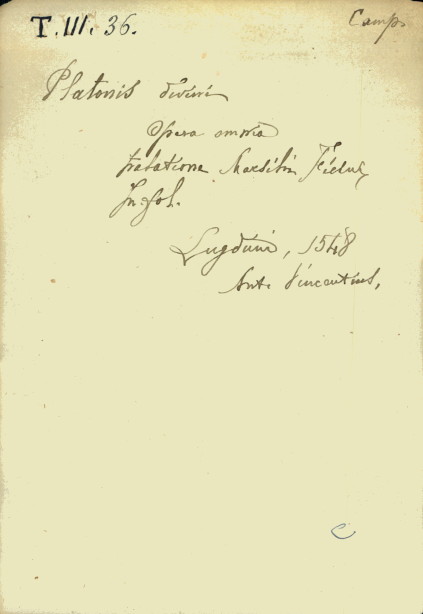 T. III. 36.
Camp.
Platonis divini
Opera omnia
tralatione Marsilii Ficini,
In fol.
Lugduni, 1548
Ant. Vincentius,
C